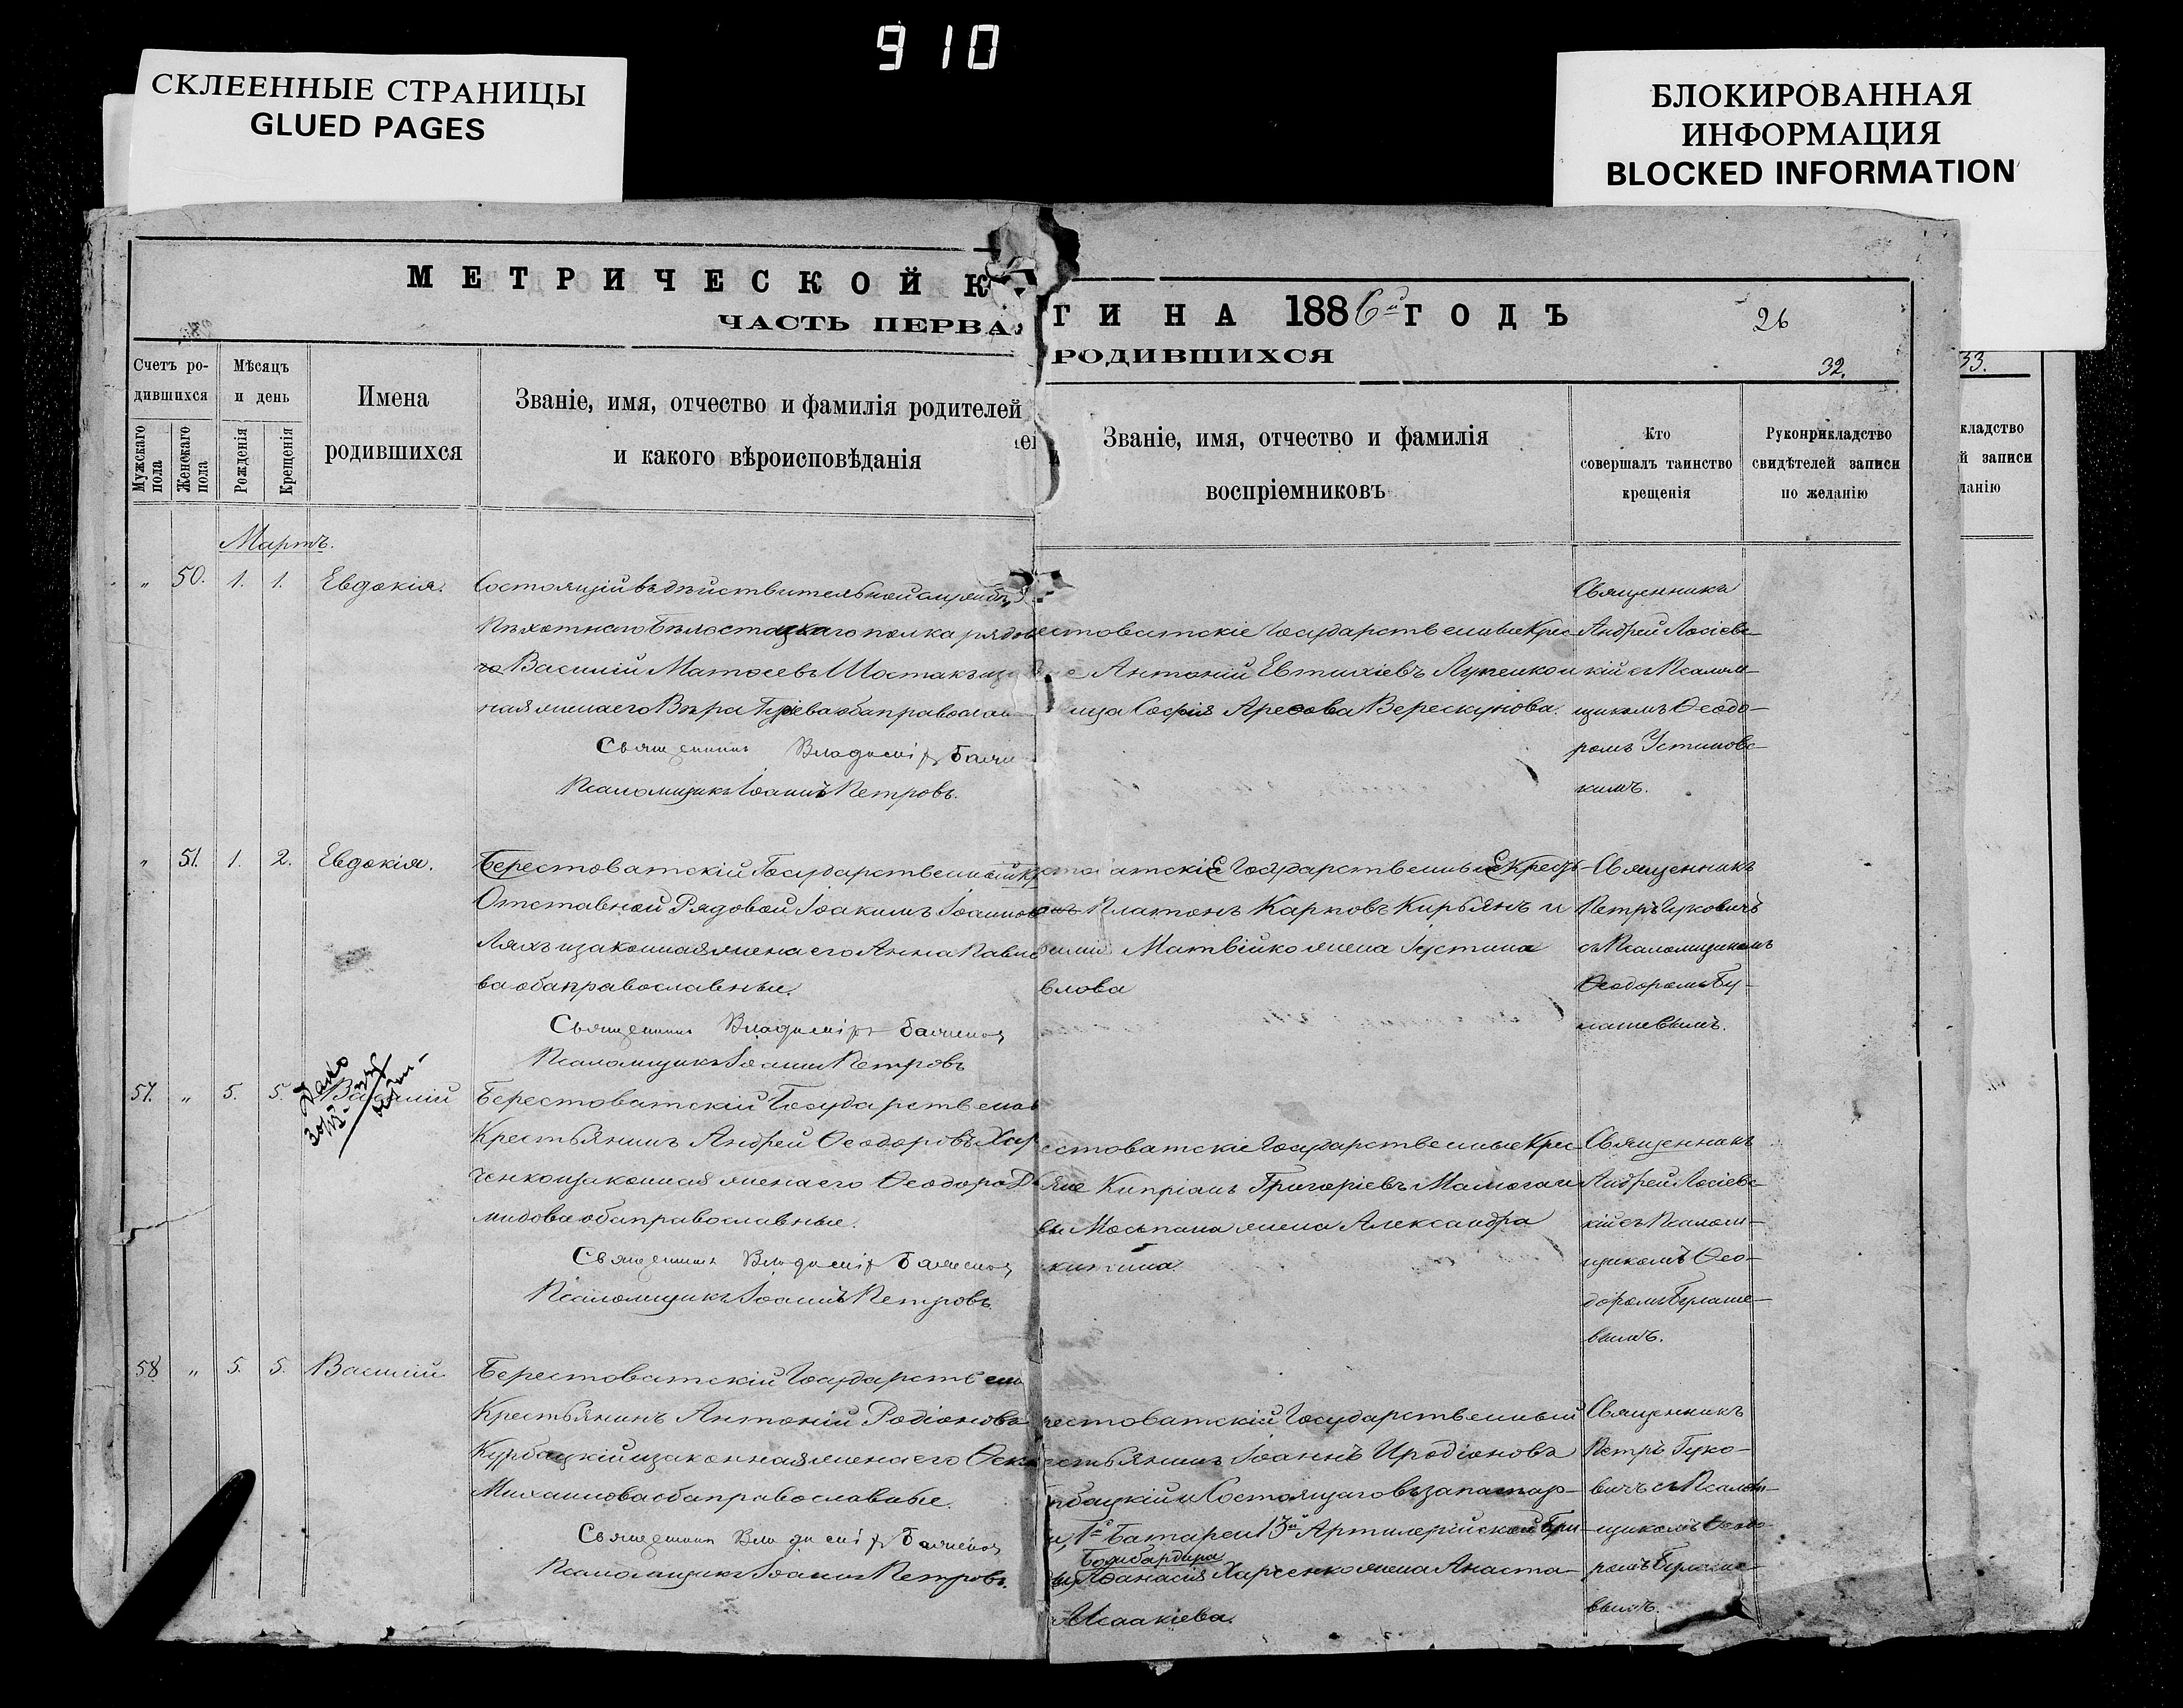 910
СКЛЕЕННЫЕ СТРАНИЦЫ
GLUED PAGES
БЛОКИРОВАННАЯ
ИНФОРМАЦИЯ
BLOCKED INFORMATION
МЕТРИЧЕСКОЙ К
ГИ НА 1886й ГОДЪ
26
ЧАСТЬ ПЕРВА
РОДИВШИХСЯ
32.
33.
Счетъ ро-
дившихся
Мужскаго пола
Женскаго пола
Мѣсяцъ
и день
Рожденія
Крещенія
Имена
родившихся
Званіе, имя, отчество и фамилія родителей
и какого вѣроисповѣданія
Званіе, имя, отчество и фамилія
воспріемниковъ
Кто
совершалъ таинство
крещенія
Рукоприкладство
свидѣтелей записи
по желанію
кладство
й записи
ланію
Мартъ.
" 50. 1. 1. Евдокія.
Состоящій въ дѣйствительной службѣ
Пѣхотнаго Бѣлостоцкаго полка рядов
Василій Матѳеевъ Шостакъ
ная жена его Вѣра оба православ
Священникъ Владиміръ
Псаломщикъ Іоаннъ Петровъ.
естоватскіе Государственные Крес
Антоній Евтихіевъ
ица Софія Арефова Верескунова.
Священникъ
Андрей Лосіевс-
кій съ Псалом-
щикомъ Ѳеодо-
ромъ Устиновс-
кимъ.
" 51. 1. 2. Евдокія.
Берестоватскій Государственный Кр
Отставной Рядовой Іоакимъ Іоаннов
Ляхъ и законная жена его Анна Павло
ва оба православные.
Священникъ Владиміръ
Псаломщикъ Іоаннъ Петровъ
атскіе Государственные Кресть-
Платонъ Карповъ Кирьянъ и
Матвійко жена Іустина
влова
Священникъ
Петръ Гуковичъ
съ Псаломщикомъ
Ѳеодоромъ Бу-
лашевымъ.
57. " 5. 5. Василій
Берестоватскій Государствен
Крестьянинъ Андрей Ѳеодоровъ Хар
ченко и законная жена его Ѳеодора Д
мидова оба православные.
Священникъ Владиміръ
Псаломщикъ Іоаннъ Петровъ.
естоватскіе Государственные Крес-
яне Кипріанъ Григоріевъ
Мосьпана жена Александра
Священникъ
Андрей Лосіевс-
кій съ Псалом-
щикомъ Ѳео-
доромъ Булаше-
вымъ.
58 " 5. 5. Василій.
Берестоватскій Государствен
Крестьянинъ Антоній Родіоновъ
Курбацкій и законная жена его
Михаилова оба православные.
Священникъ Владиміръ
Псаломщикъ Іоаннъ Петровъ.
рестоватскій Государственный
естьянинъ Іоаннъ Иродіоновъ
рбацкій и Состоящаго въ запас
1й Батареи 13й Артилерійской Бри-
Бомбардира
Аѳанасія Харченко жена Анаста-
Исаакіева.
Священникъ
Петръ Гуко-
вичъ съ Псалом-
щикомъ Ѳеодо-
ромъ Булаше-
вымъ.